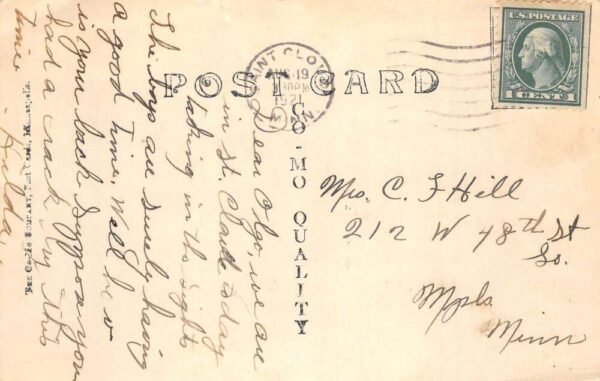 POST CARD
SAINT CLOUD
AUG 19
1921
MINN.
U.S. POSTAGE
1 CENT 1
CO-MO QUALITY
Mrs. C. F Hill
212 W 48th St
So.
Mpls
Minn
Dear Olga, we are
in St. Cloud today
taking in the sights
The boys are surely having
a good time. Well how
is your back Suppose you
had a crack by this
time.
Hulda
COMPANY,